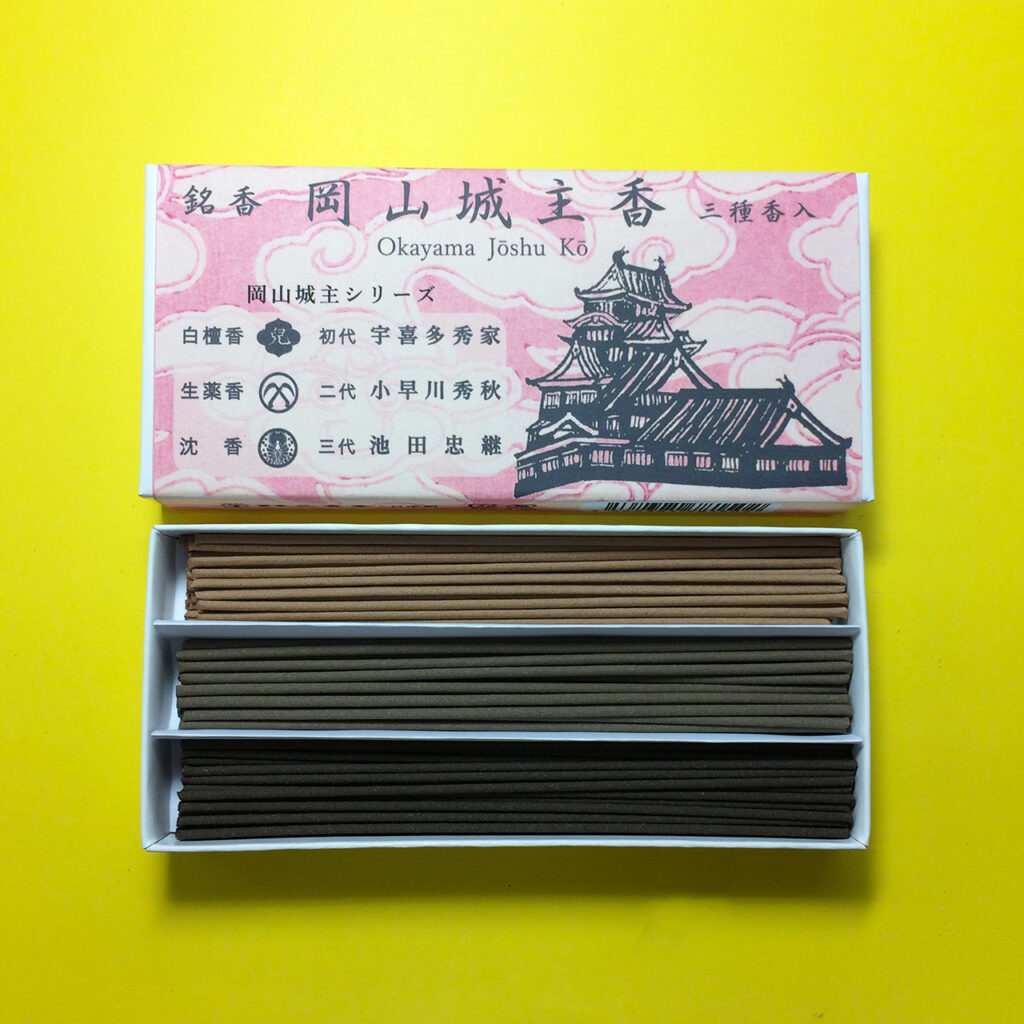 銘香 岡山城主香 三種香入
Okayama Jōshu Kō
岡山城主シリーズ
白檀香 兒 初代 宇喜多秀家
生薬香 二代 小早川秀秋
沈香 三代 池田忠継